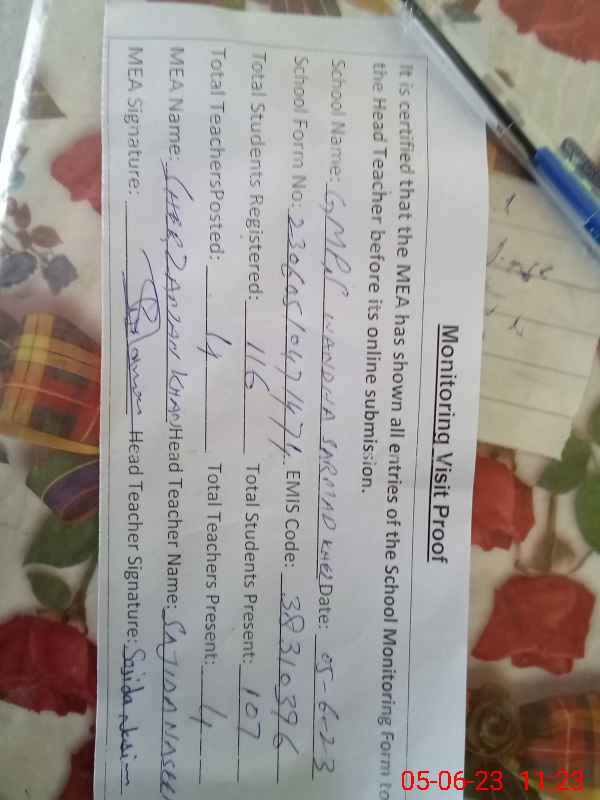 Monitoring Visit Proof
It is certified that the MEA has shown all entries of the School Monitoring Form to
the Head Teacher before its online submission.
School Name: GMPS WANDNA SARMAD KHEL Date: 05-6-23
School Form No: EMIS Code: 38310396
Total Students Registered: 116 Total Students Present: 107
Total Teachers Posted: 4 Total Teachers Present: 4
MEA Name: SHERZADDAN KHAN Head Teacher Name: SAJIDA NASEEM
MEA Signature: Head Teacher Signature: Sajida
05-06-23 11:23